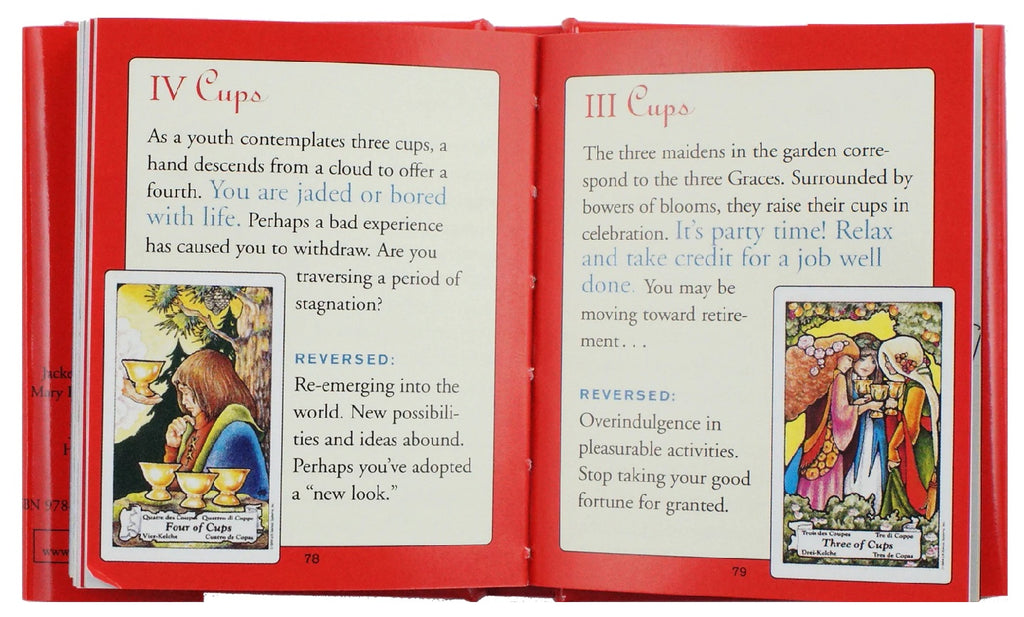 IV Cups
As a youth contemplates three cups, a
hand descends from a cloud to offer a
fourth. You are jaded or bored
with life. Perhaps a bad experience
has caused you to withdraw. Are you
traversing a period of
stagnation?
REVERSED:
Re-emerging into the
world. New possibili-
ties and ideas abound.
Perhaps you've adopted
a "new look."
Quatre des Coupes Quattro di Coppe
Four of Cups
Vier-Kelche Cuatro de Copas
78
III Cups
The three maidens in the garden corre-
spond to the three Graces. Surrounded by
bowers of blooms, they raise their cups in
celebration. It's party time! Relax
and take credit for a job well
done. You may be
moving toward retire-
ment...
REVERSED:
Overindulgence in
pleasurable activities.
Stop taking your good
fortune for granted.
Trois des Coupes Tre di Coppe
Three of Cups
Drei-Kelche Tres de Copas
79
Jacke
Mary
BN 978-
www